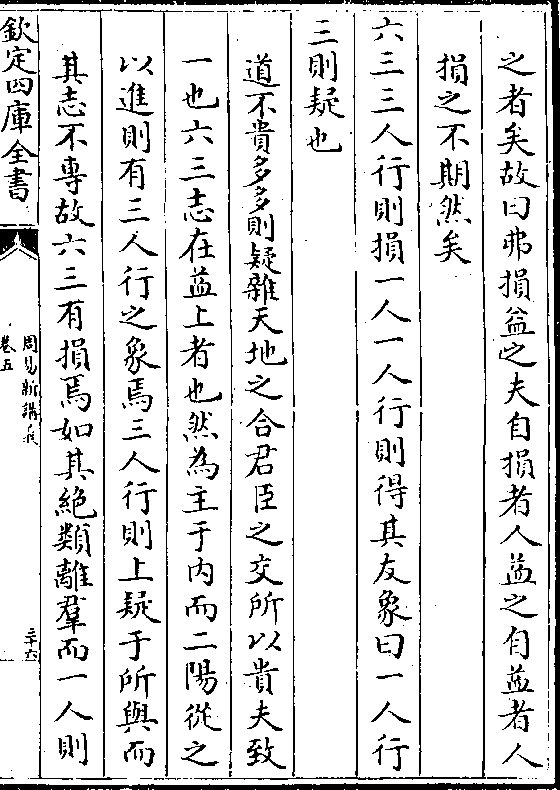 之者矣故曰弗損益之夫自損者人益之自益者人
損之不期然矣
六三三人行則損一人一人行則得其友象曰一人行
三則疑也
道不貴多多則疑雜天地之合君臣之交所以貴夫致
一也六三志在益上者也然為主于内而二陽從之
以進則有三人行之象焉三人行則上疑于所與而
其志不專故六三有損焉如其絶類離羣而一人則
欽定四庫全書
周易新講義
卷五
三十六